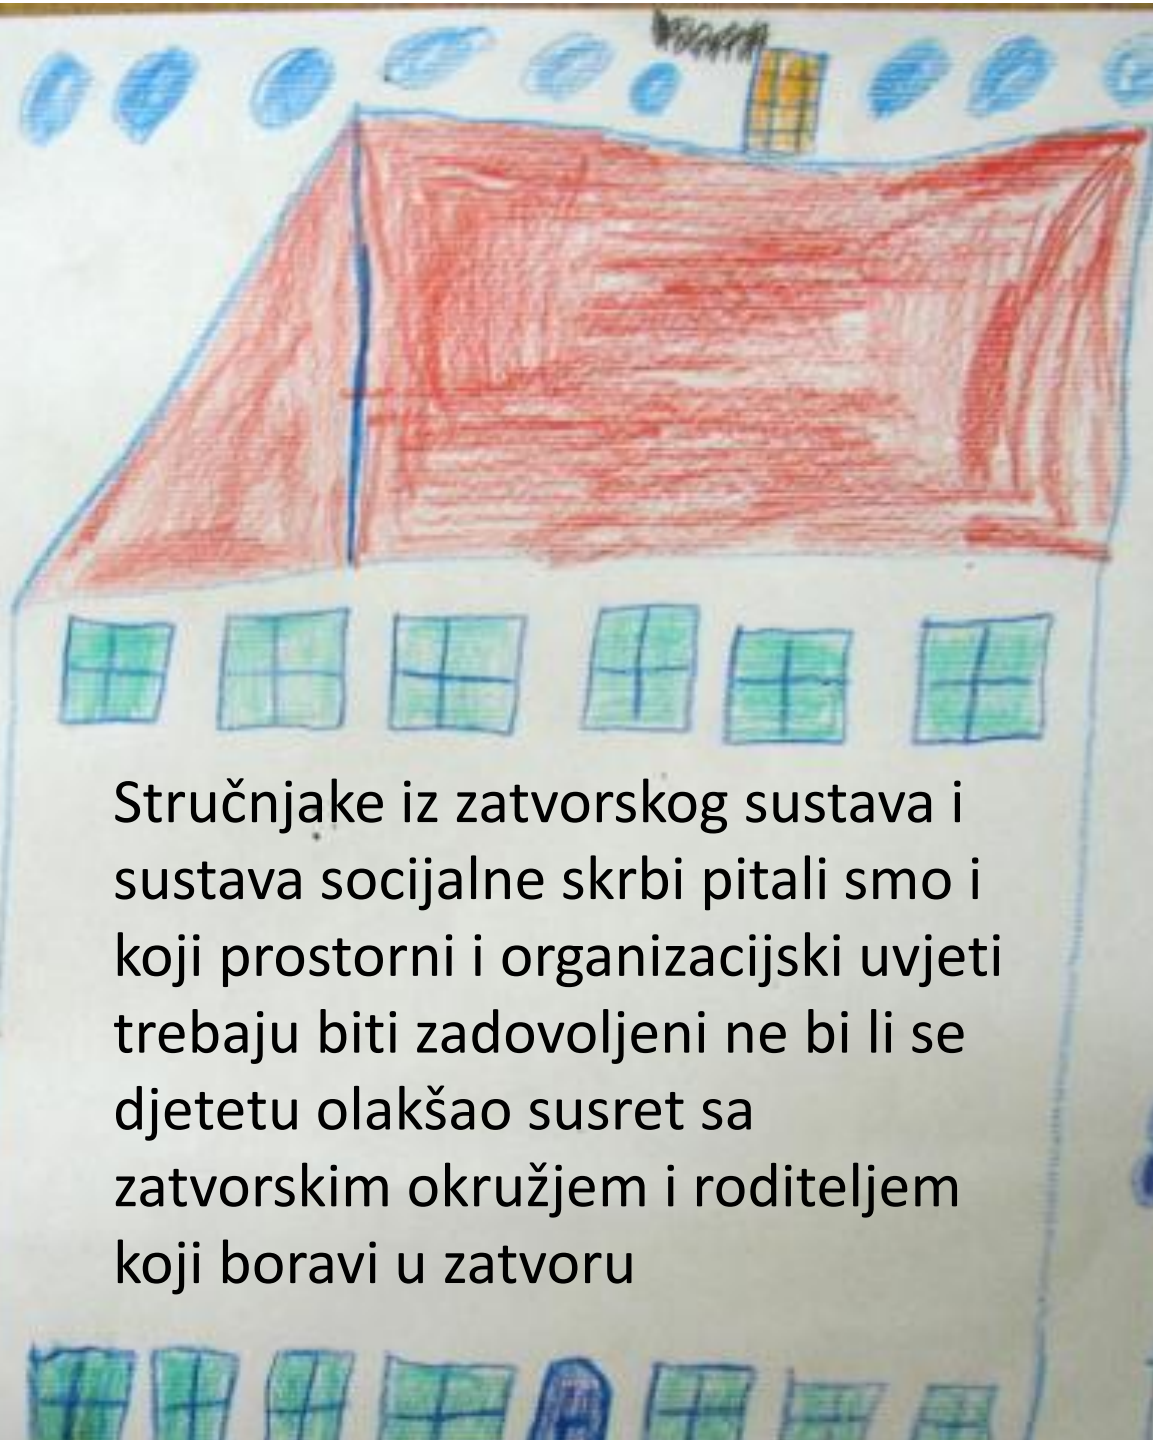 Stručnjake iz zatvorskog sustava i
sustava socijalne skrbi pitali smo i
koji prostorni i organizacijski uvjeti
trebaju biti zadovoljeni ne bi li se
djetetu olakšao susret sa
zatvorskim okružjem i roditeljem
koji boravi u zatvoru